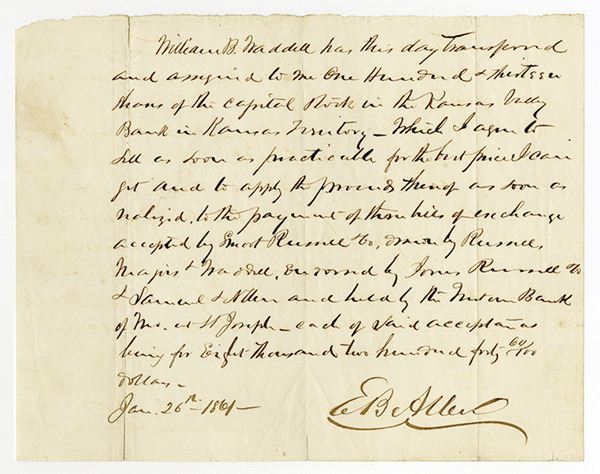 William B. Waddell has this day transferred
and assigned to me One Hundred & thirteen
shares of the capital Stock in the Kansas Valley
Bank in Kansas Territory – Which I agree to
Sell as soon as practicable for the best price I can
get and to apply the proceeds thereof as soon as
realized, to the payment of three bills of exchange
accepted by Smoot Russell & Co, drawn by Russell,
Majors & Waddell, endorsed by Jones Russell & Co
& Samuel & Allen and held by the Western Bank
of Mo. at St Joseph – each of said acceptances
being for Eight thousand two hundred forty 60/100
dollars –
Jan. 26th – 1861 –
E B Allen